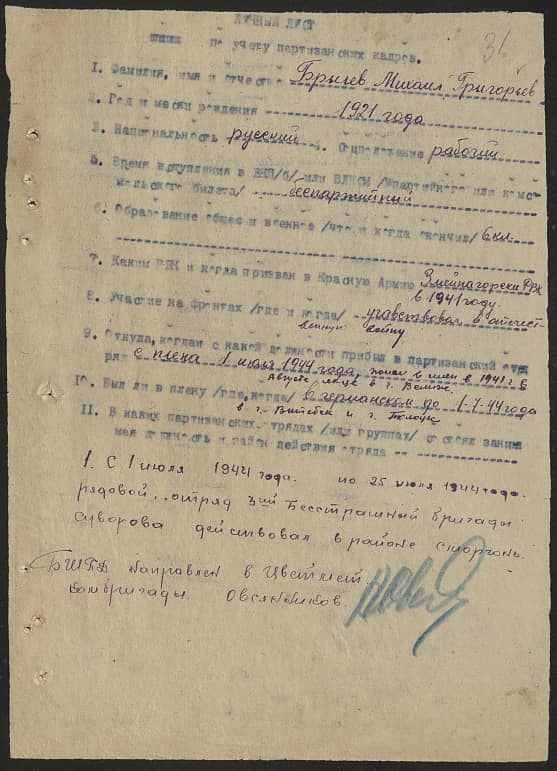 ЛИЧНЫЙ ЛИСТ
31
по учету партизанских кадров.
1. Фамилия, имя и отчество Брысев Михаил Григорьев
2. Год и место рождения 1921 года
3. Национальность русский 4. Соцположение рабочий
5. Время вступления в ВКП/б/ или ВЛКСМ /№партийного или комсо-
мольского билета/ беспартийный
6. Образование общее и военное /что и когда окончил/ 6 кл.
7. Каким РВК и когда призван в Красную Армию Змейногорски РВК
в 1941 году.
8. Участие на фронтах /где и когда/ участвовал в отечест-
венную войну
9. Откуда, когда и с какой должности прибыл в партизанский отря
ряд с плена 1 июля 1944 года, попал в плен в 1941 г в
августе м-це в г. Велиж.
10. Был ли в плену /где, когда/ в германском до 1-7-44 года
в г. Витебск и г. Полоцк
11. В каких партизанских отрядах /или группах/ состоял занима
мая должность и район действия отряда
1. С 1 июля 1944 года. по 25 июля 1944 года.
рядовой, отряд 3ий Бесстрашный бригады
Суворова действовал в районе Сморгонь.
БШПД направлен в
Комбригады Овсянников.